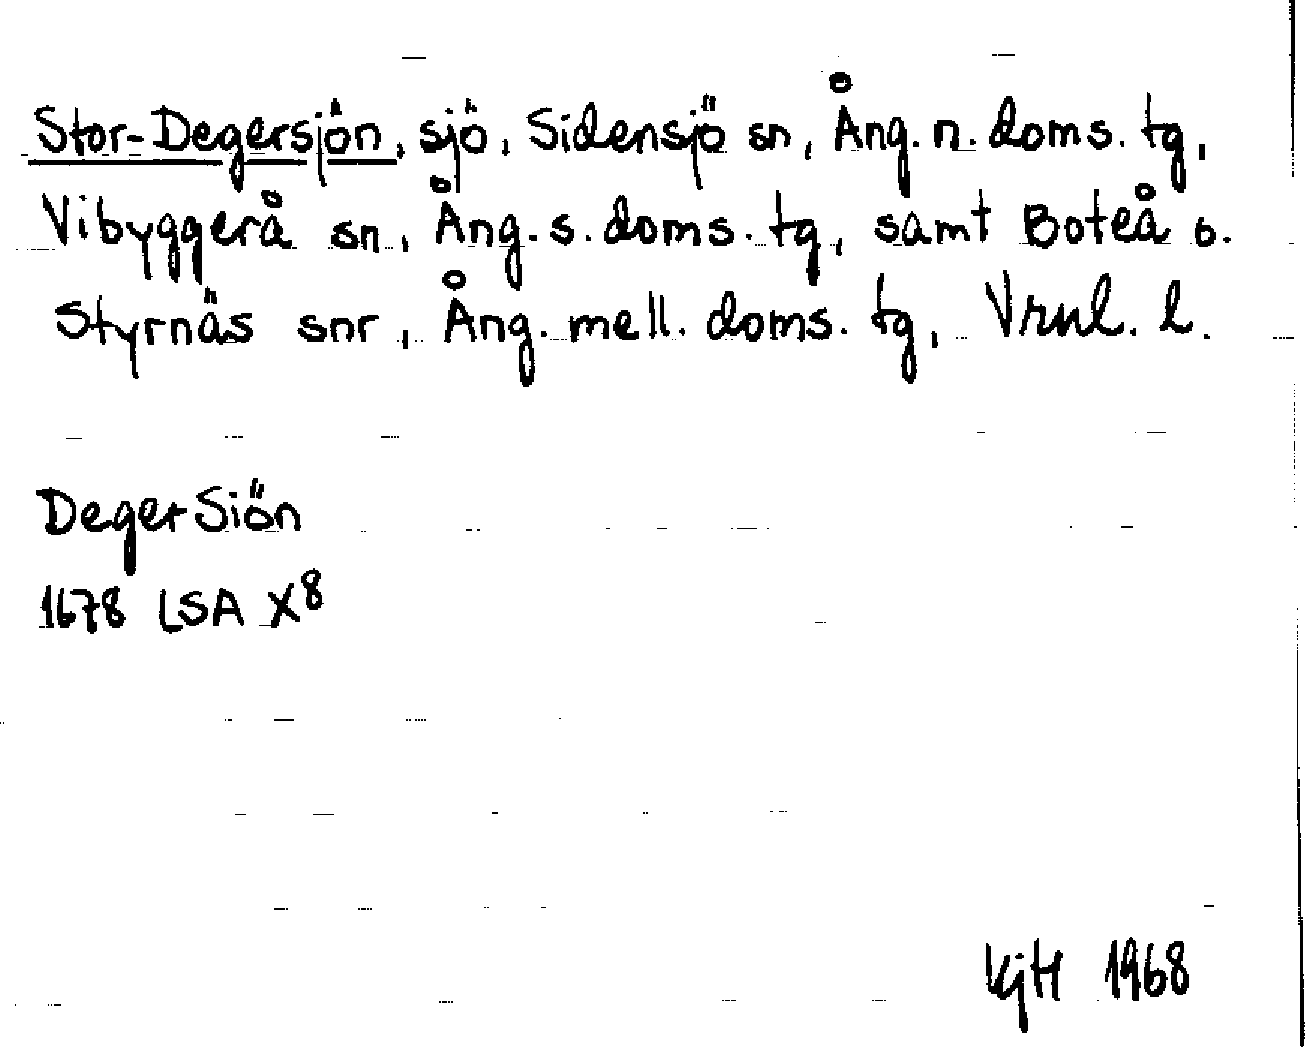 Stor-Degersjön, sjö, Sidensjö sn, Ång. n. doms. tg,
Vibyggerå sn, Ång. s. doms. tg, samt Boteå o.
Styrnäs snr, Ång. mell. doms. tg, Vrnl. l.
DegerSiön
1678 LSA X8
KjH 1968